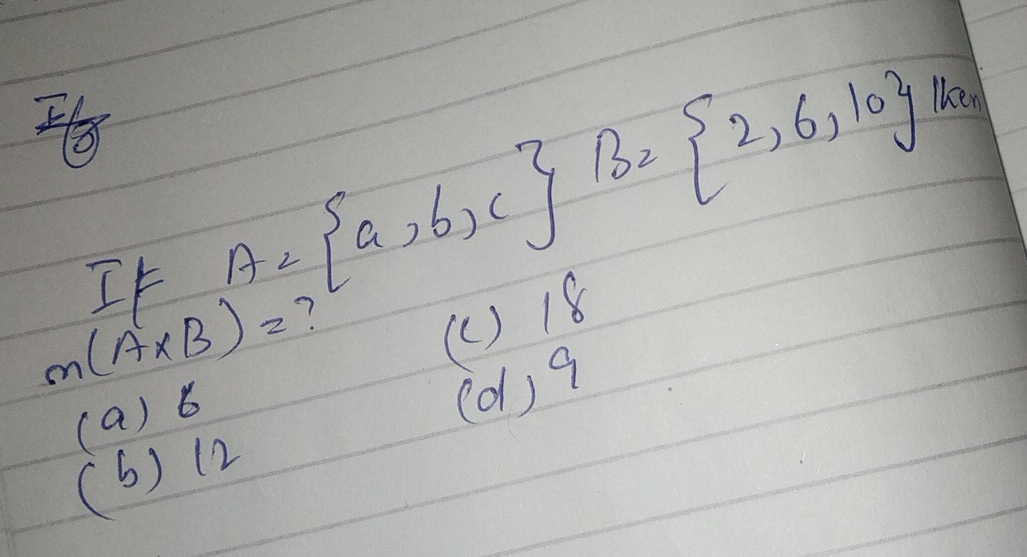 If A = {a, b, c} B = {2, 6, 10} then
n(A×B) = ?
(a) 6 (c) 18
(b) 12 (d) 9